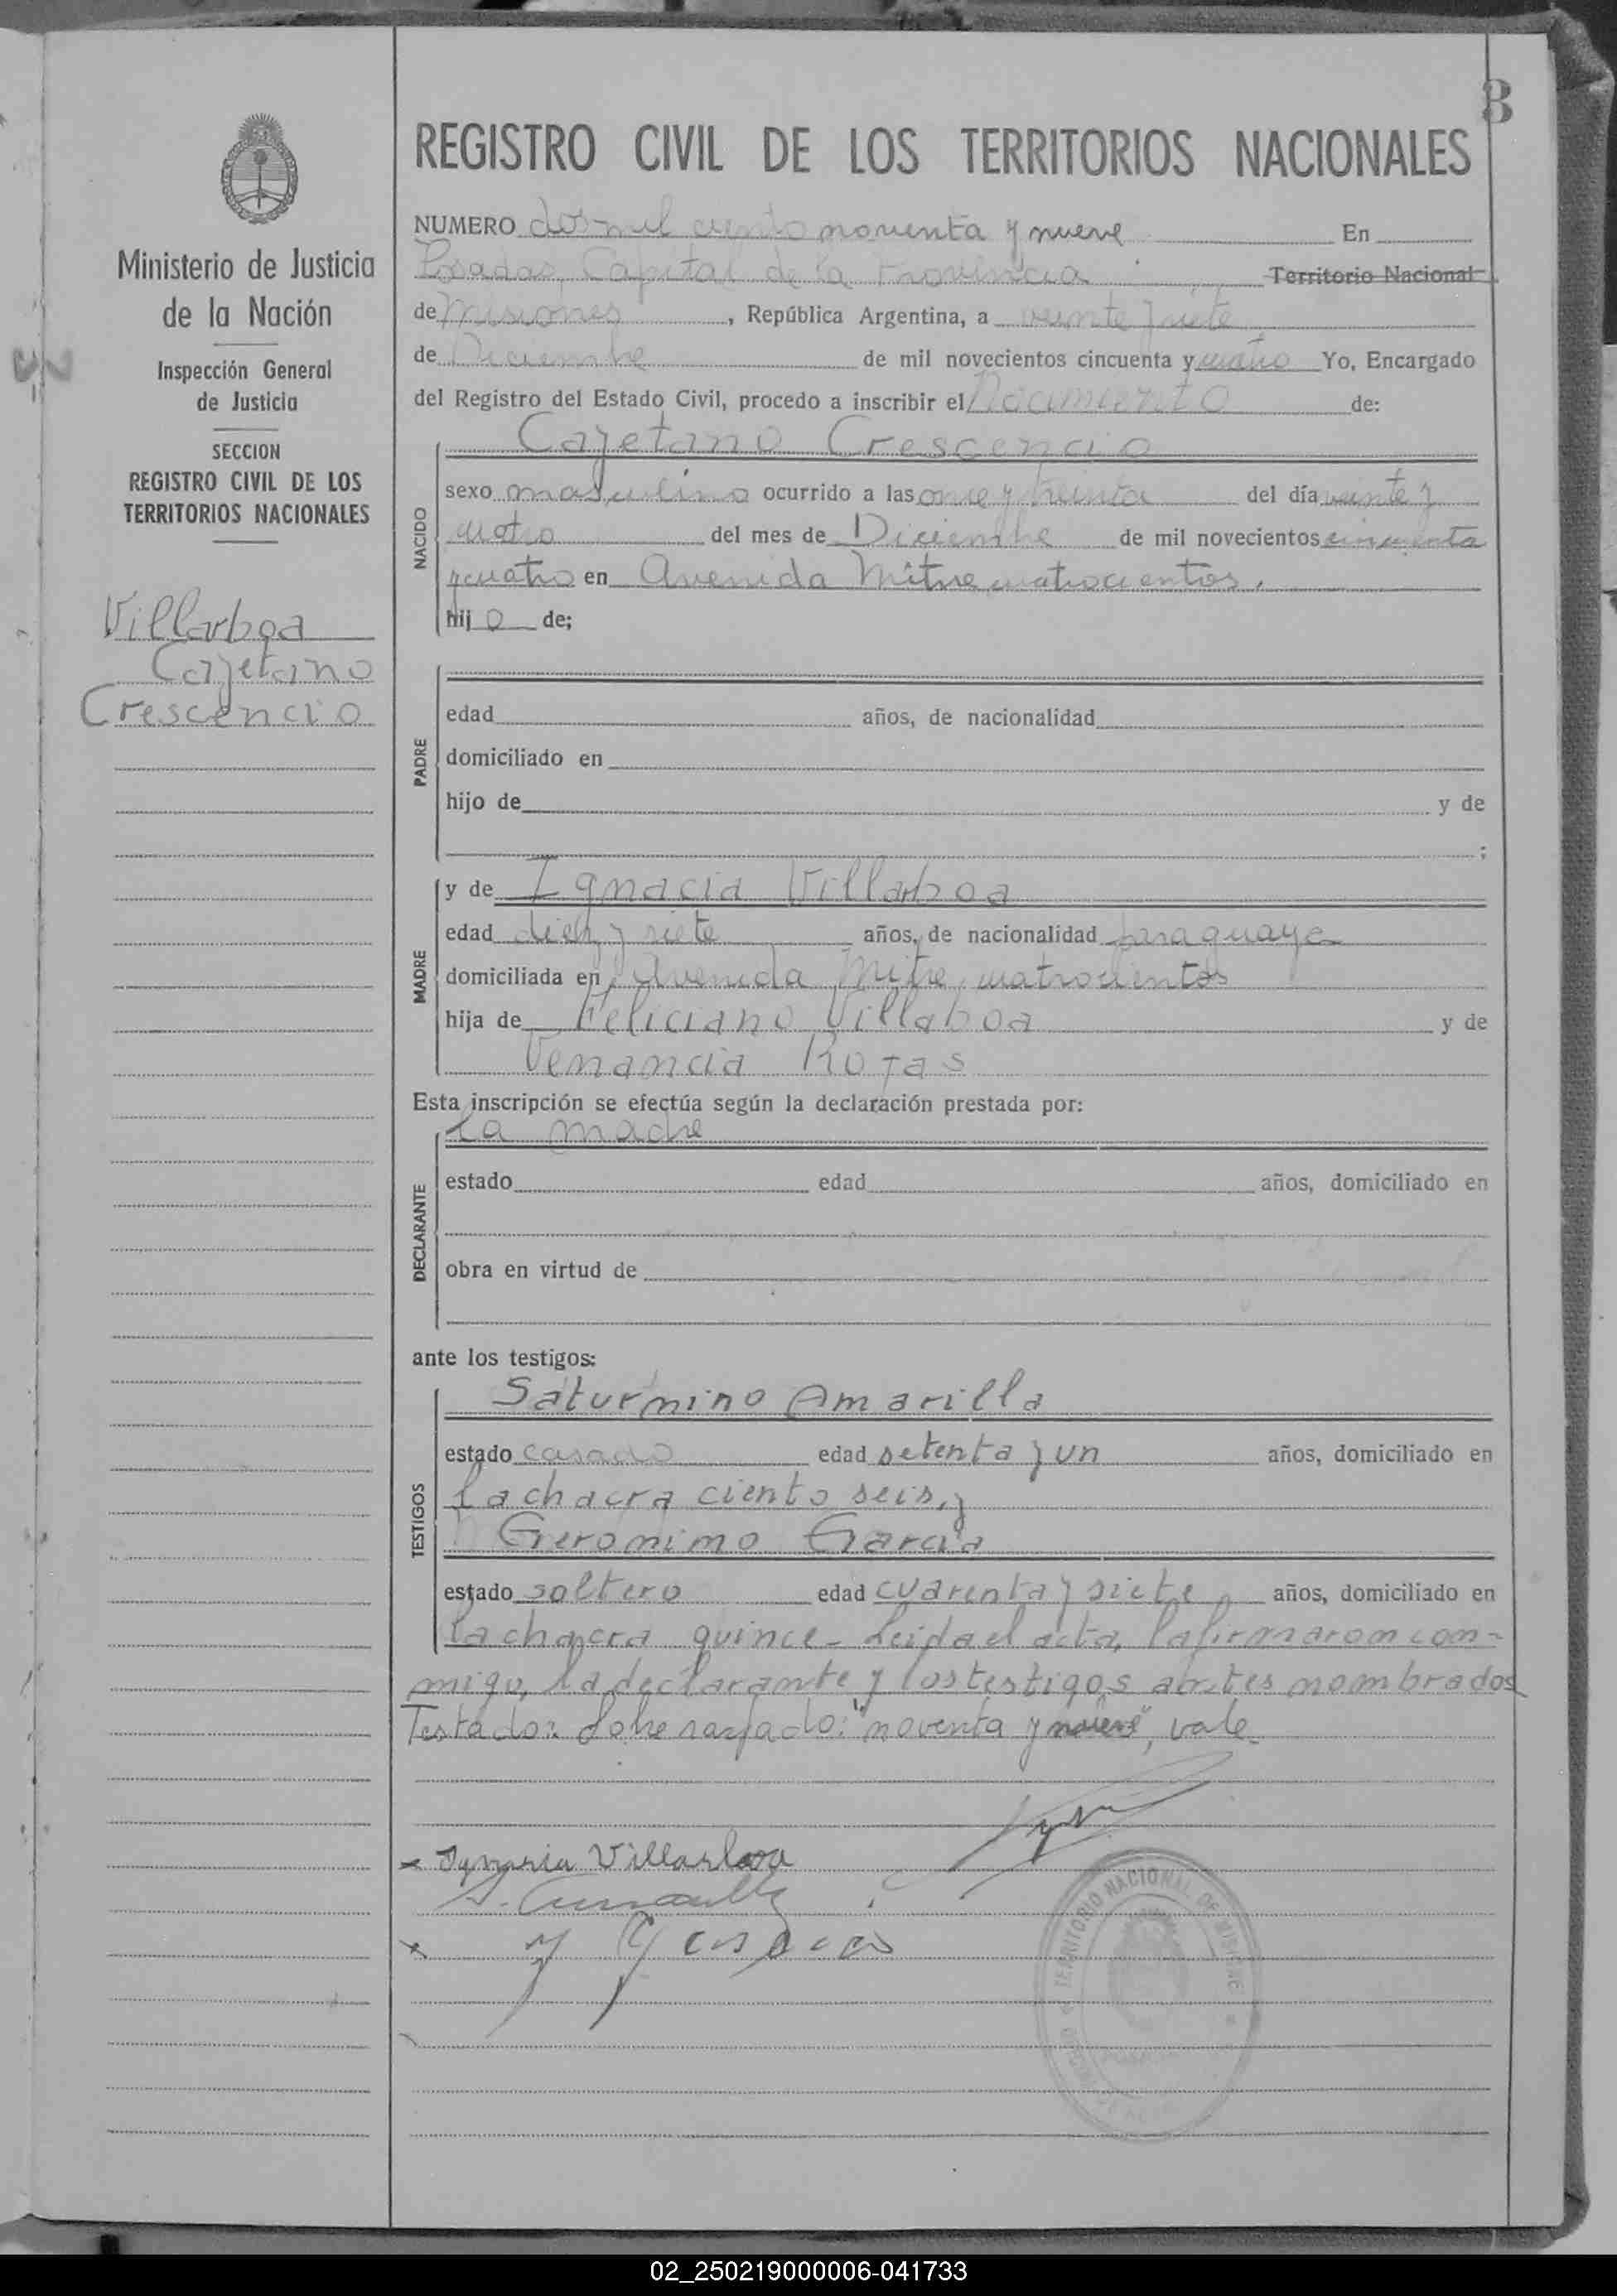 3
REGISTRO CIVIL DE LOS TERRITORIOS NACIONALES
Ministerio de Justicia
de la Nación
Inspección General
de Justicia
SECCION
REGISTRO CIVIL DE LOS
TERRITORIOS NACIONALES
Villarboa
Cayetano
Crescencio
NUMERO dos mil ciento noventa y nueve En
Posadas, Capital de la Provincia Territorio Nacional
de Misiones, República Argentina, a veinte y siete
de Diciembre de mil novecientos cincuenta y cuatro Yo, Encargado
del Registro del Estado Civil, procedo a inscribir el Nacimiento de:
NACIDO
Cayetano Crescencio
sexo masculino ocurrido a las once y treinta del día veinte y
cuatro del mes de Diciembre de mil novecientos cincuenta
y cuatro en Avenida Mitre cuatrocientos,
hijo de;
PADRE
edad años, de nacionalidad
domiciliado en
hijo de y de
;
MADRE
y de Ignacia Villarboa
edad diez y siete años, de nacionalidad paraguaya
domiciliada en Avenida Mitre cuatrocientos
hija de Feliciano Villaboa y de
Venancia Rojas
Esta inscripción se efectúa según la declaración prestada por:
DECLARANTE
la madre
estado edad años, domiciliado en
obra en virtud de
ante los testigos:
TESTIGOS
Saturnino Amarilla
estado casado edad setenta y un años, domiciliado en
la chacra ciento seis, y
Geronimo Garcia
estado soltero edad cuarenta y siete años, domiciliado en
la chacra quince- Leida el acta, la firmaron con-
migo, la declarante y los testigos antes nombrados
Testado: Sobre raspado: "noventa y nueve", vale-
Ygnacia Villarboa
TERRITORIO NACIONAL DE MISIONES
02_250219000006-041733